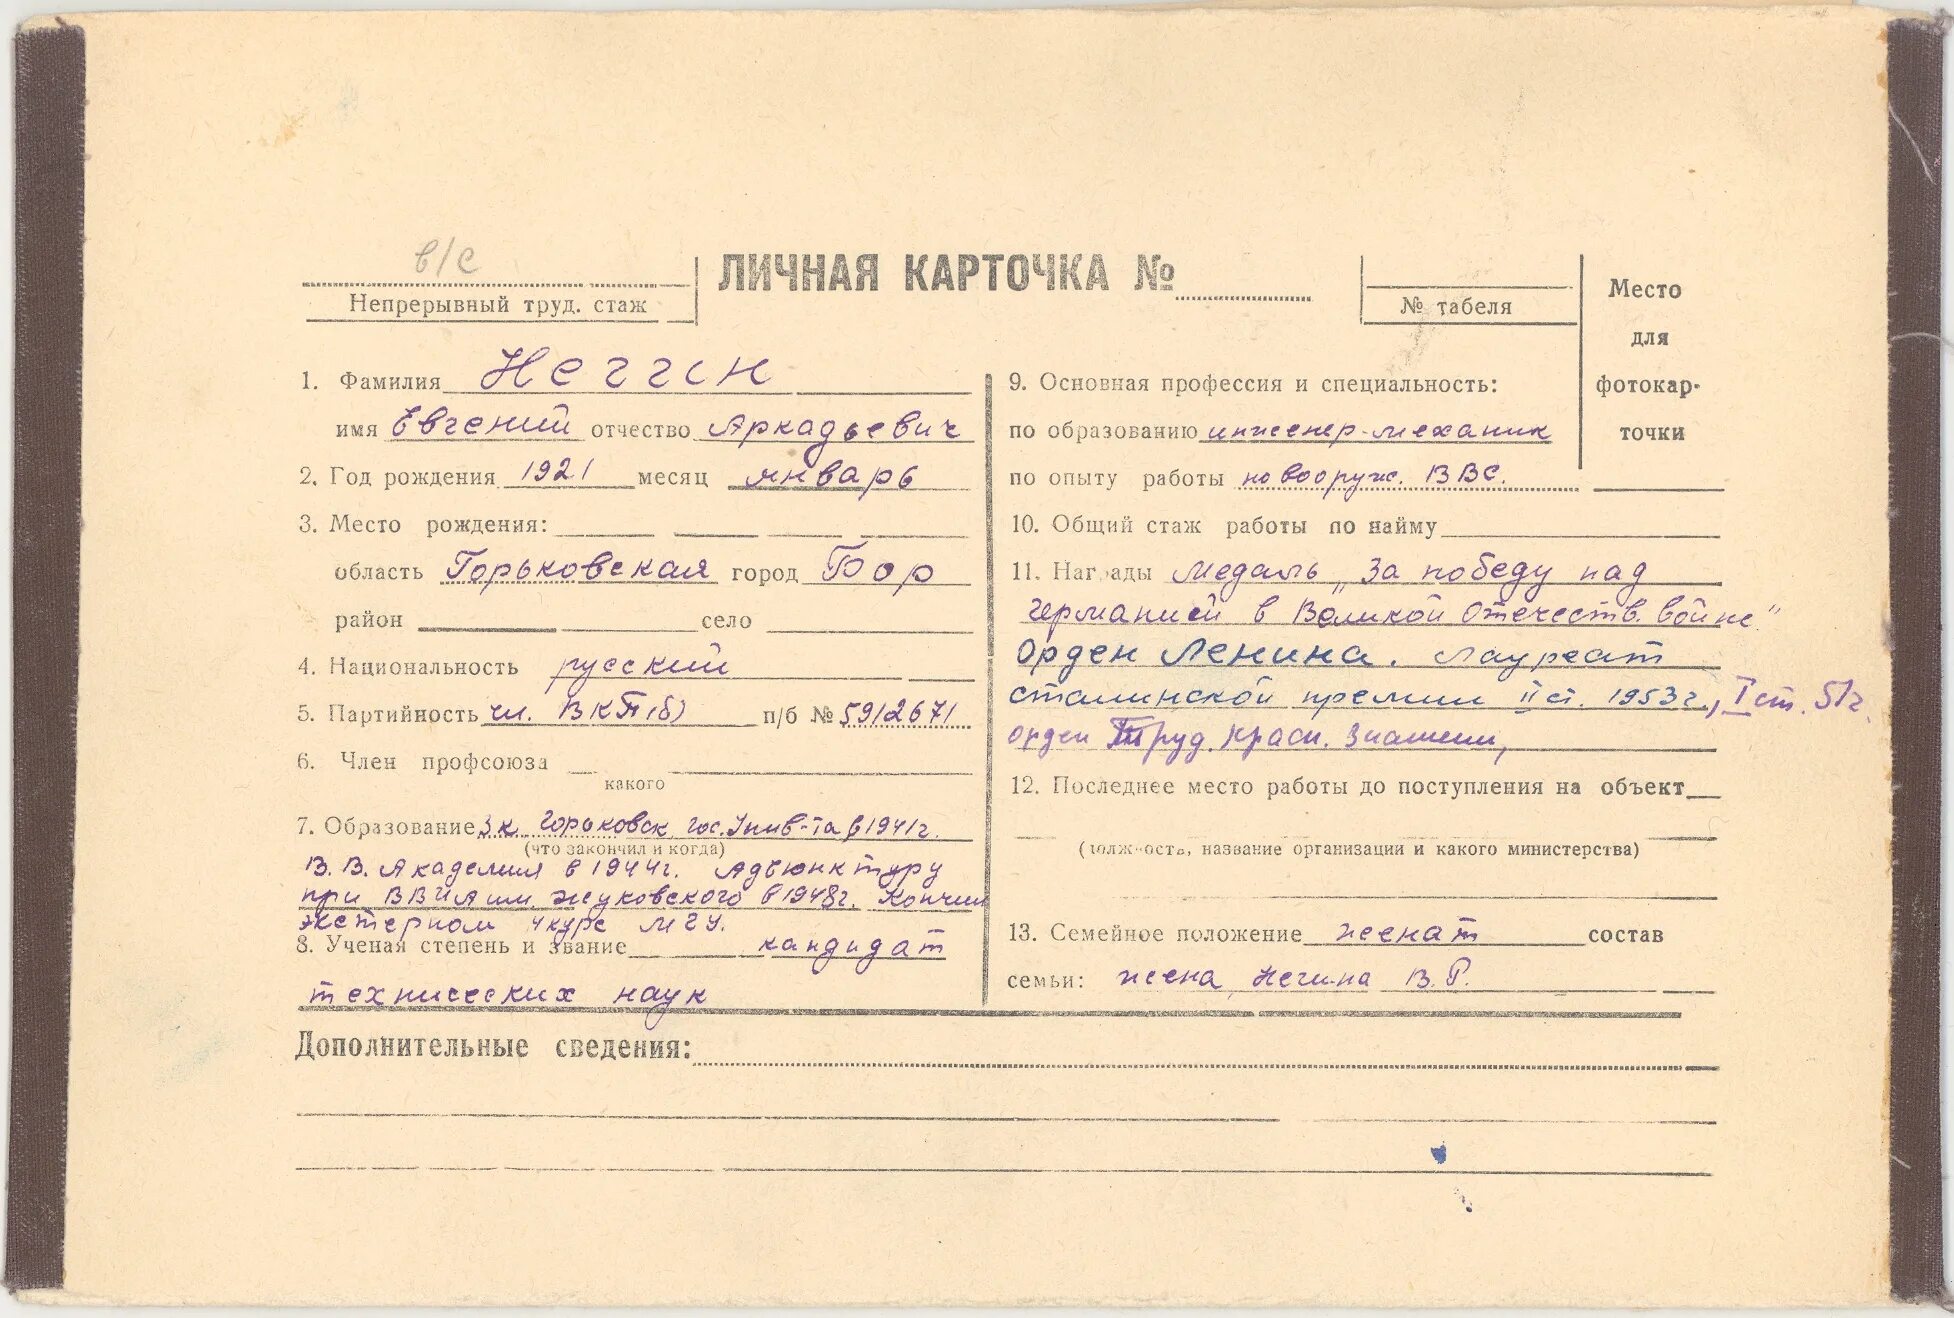 в/с
Непрерывный труд. стаж
ЛИЧНАЯ КАРТОЧКА №
№ табеля
Место
для
фотокар-
точки
1. Фамилия Негин
имя Евгений отчество Аркадьевич
2. Год рождения 1921 месяц январь
3. Место рождения:
область Горьковская город Бор
район село
4. Национальность русский
5. Партийность чл. ВКП(б) п/б № 5912671
6. Член профсоюза
какого
7. Образование 3 к. Горьковск. гос. Унив-та в 1941г.
(что закончил и когда)
В. В. Академия в 1944г. Адъюнктуру
при ВВИА им. Жуковского в 1948г. Кончил
экстерном 4 курс МГУ.
8. Ученая степень и звание кандидат
технических наук
9. Основная профессия и специальность:
по образованию инженер-механик
по опыту работы по вооруж. ВВС.
10. Общий стаж работы по найму
11. Награды Медаль „За победу над
Германией в Великой Отечеств. войне"
Орден Ленина. Лауреат
сталинской премии II ст. 1953г., I ст. 51г.
орден Труд. Красн. Знамени,
12. Последнее место работы до поступления на объект
(должность, название организации и какого министерства)
13. Семейное положение женат состав
семьи: жена, Негина В. Р.
Дополнительные сведения: